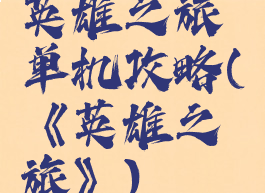 英雄之旅
单机攻略(
《英雄之
旅》)